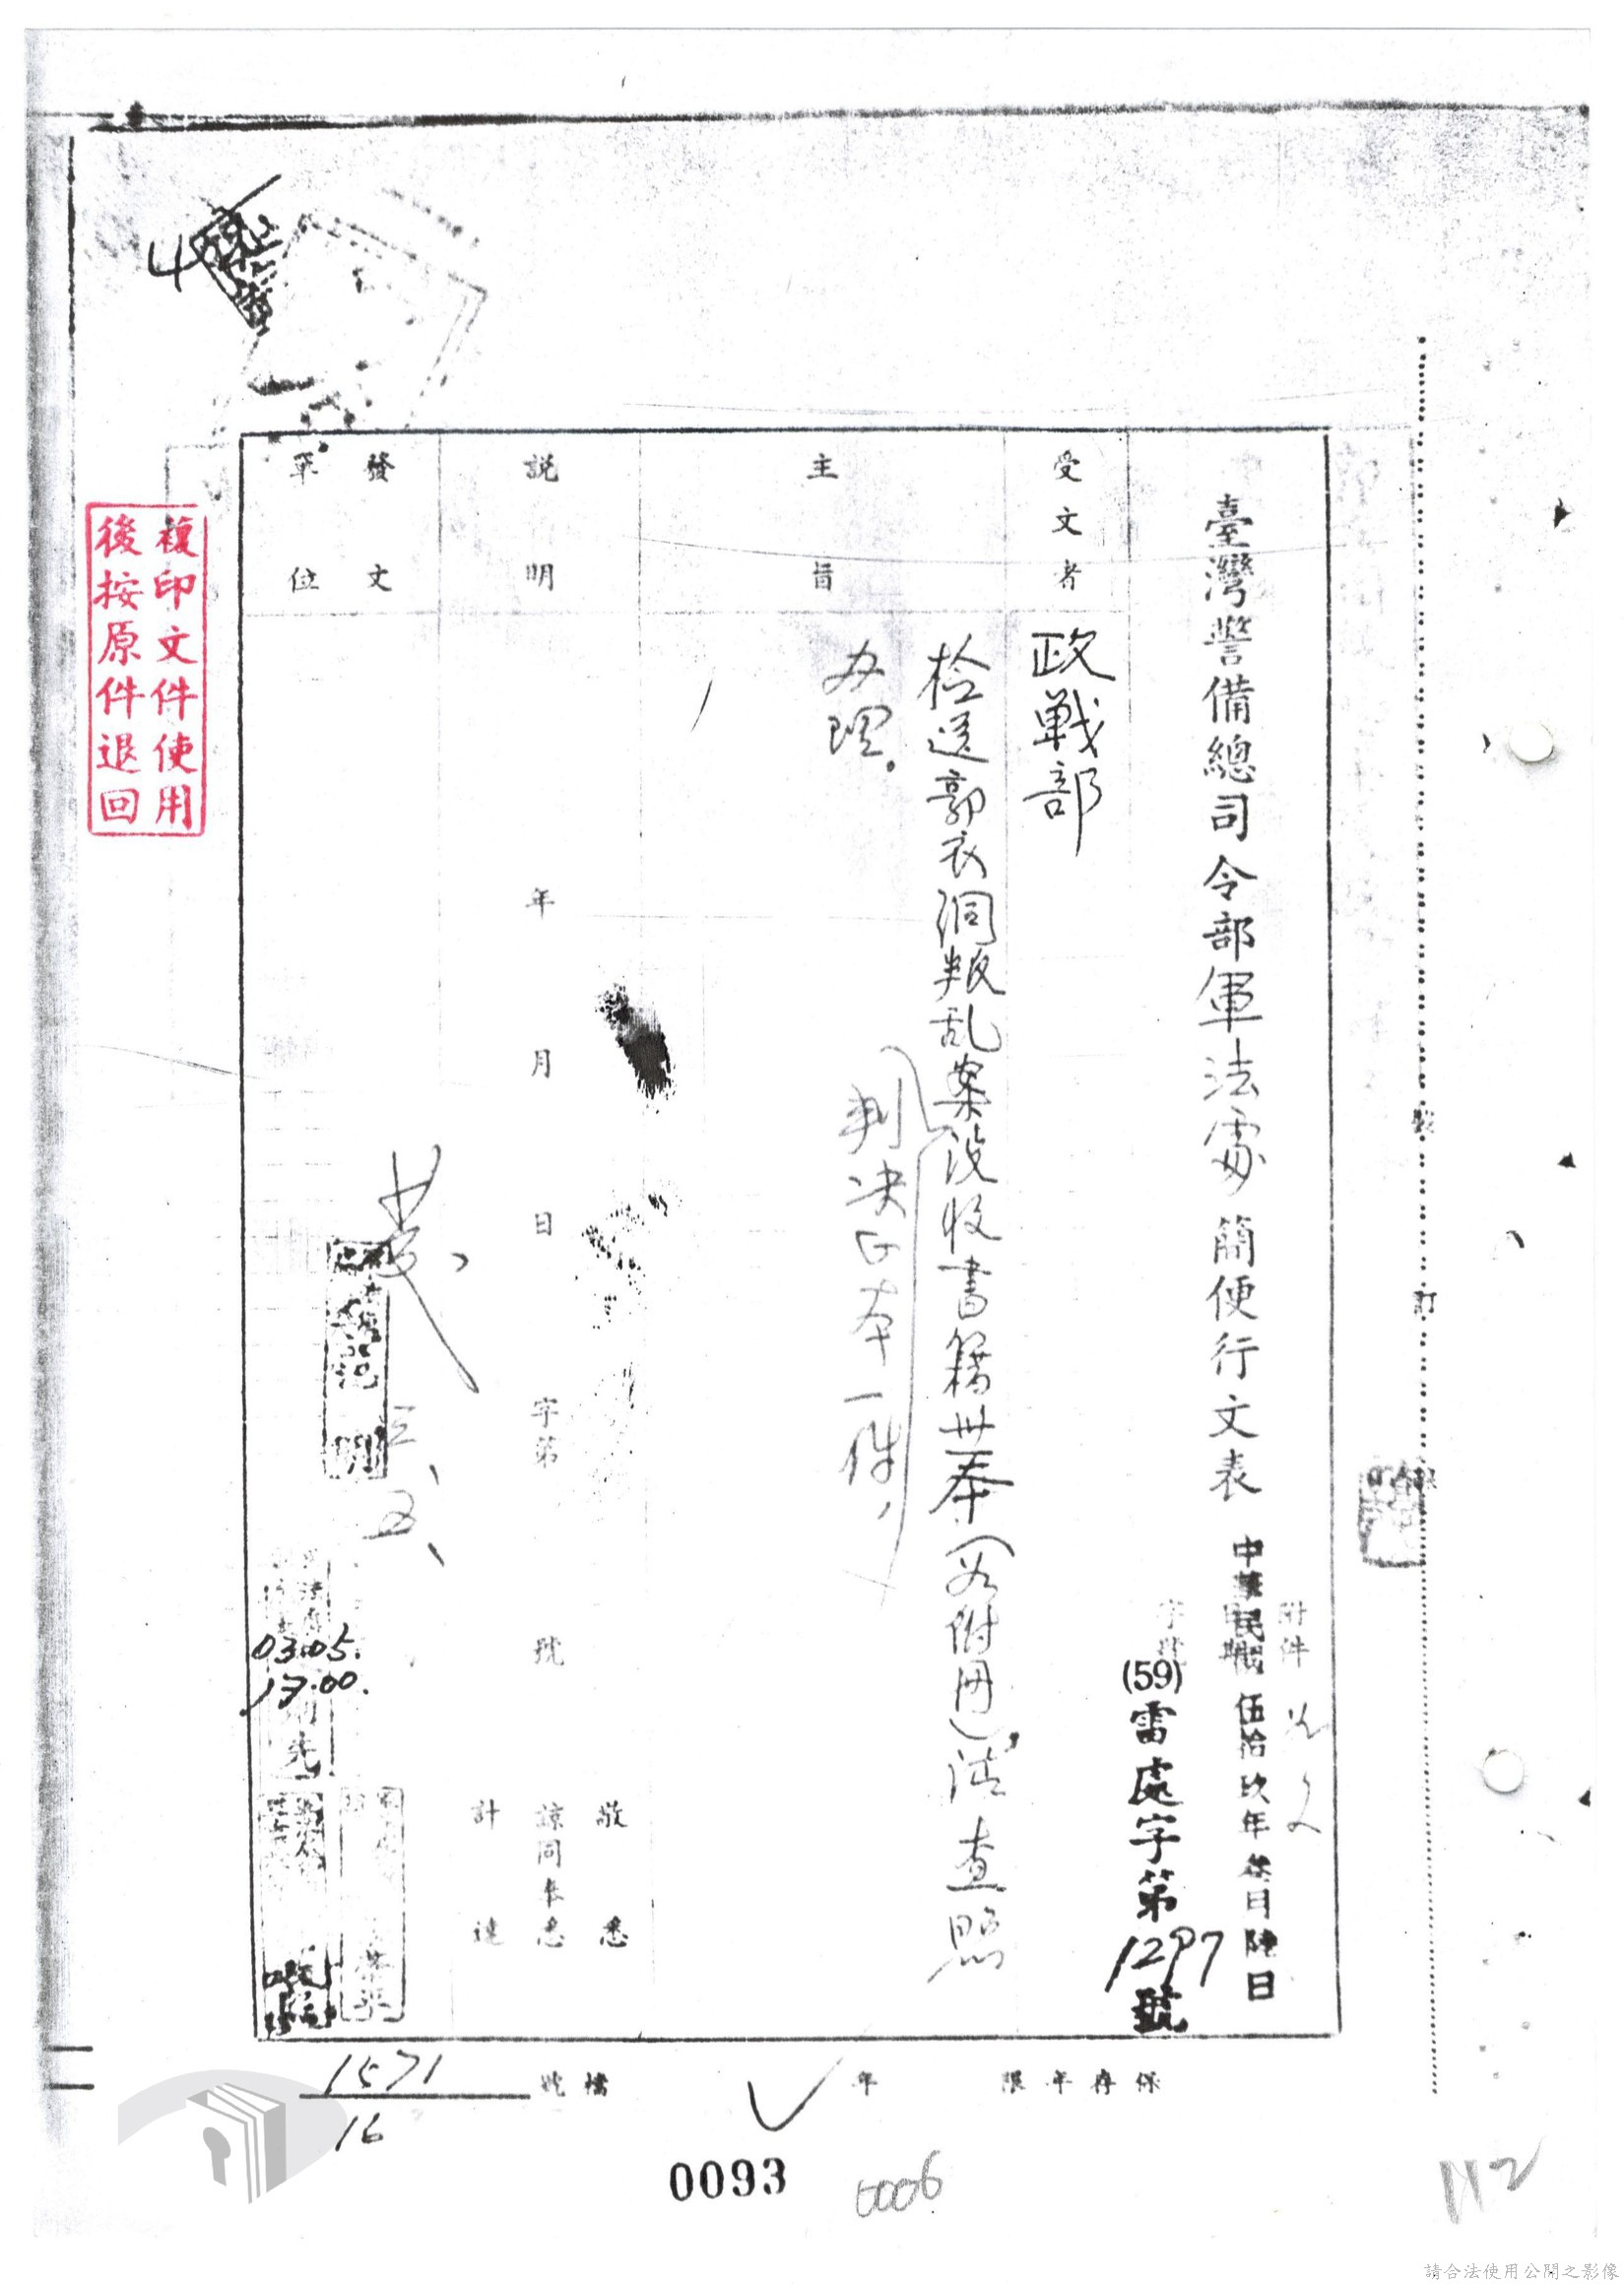 臺灣警備總司令部軍法處簡便行文表
附件
中華民國伍拾玖年叁月陸日
字號
(59)雷處字第1297號
受文者
政戰部
主旨
檢送郭衣洞叛乱案没收書籍卅本(如附册)，請查照
办理。
判决正本一件，
說明
年月日字第號
敬悉
諒同本悉
計達
發文
單位
03.05.
17.00.
複印文件使用
後按原件退回
裝
訂
線
保存年限
年
檔號
1571
16
0093
0006
112
請合法使用公開之影像